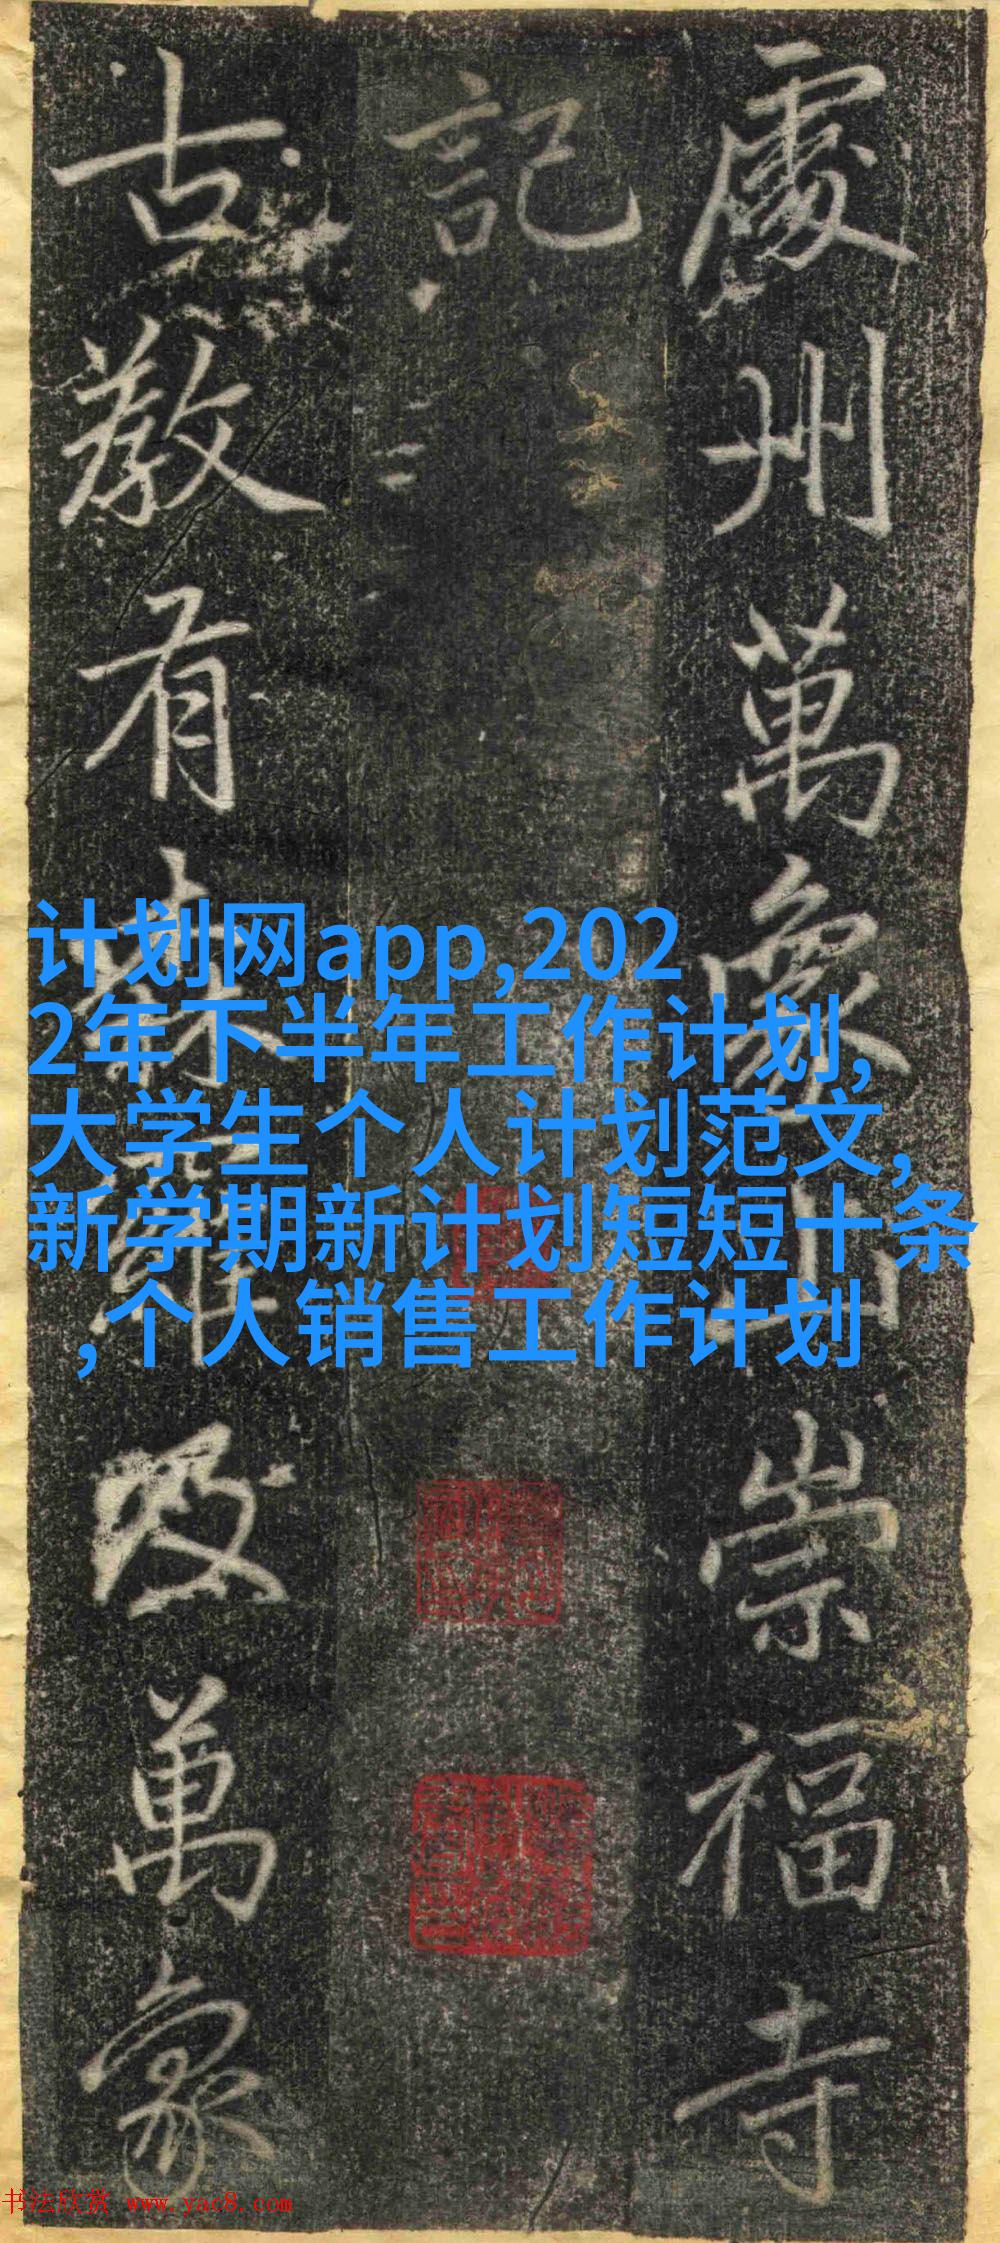 處州萬象山崇福寺
記
古教有森羅及萬象
计划网app,202
2年下半年工作计划,
大学生个人计划范文,
新学期新计划短短十条
,个人销售工作计划
书法欣赏 www.yac8.com